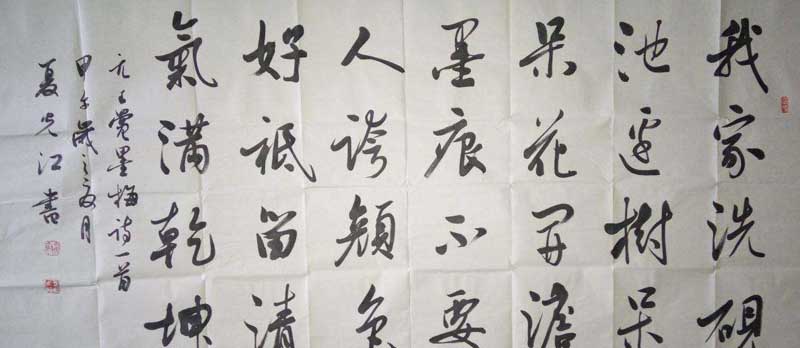 我家洗硯
池邊樹呆
呆花開澹
墨痕不要
人誇顏色
好祇留清
氣滿乾坤
元王冕墨梅詩一首
甲午歲之夏月
夏光江書